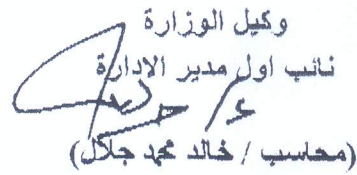 وكيل الوزارة
نائب اول مدير الادارة
(محاسب / خالد محمد جلال)